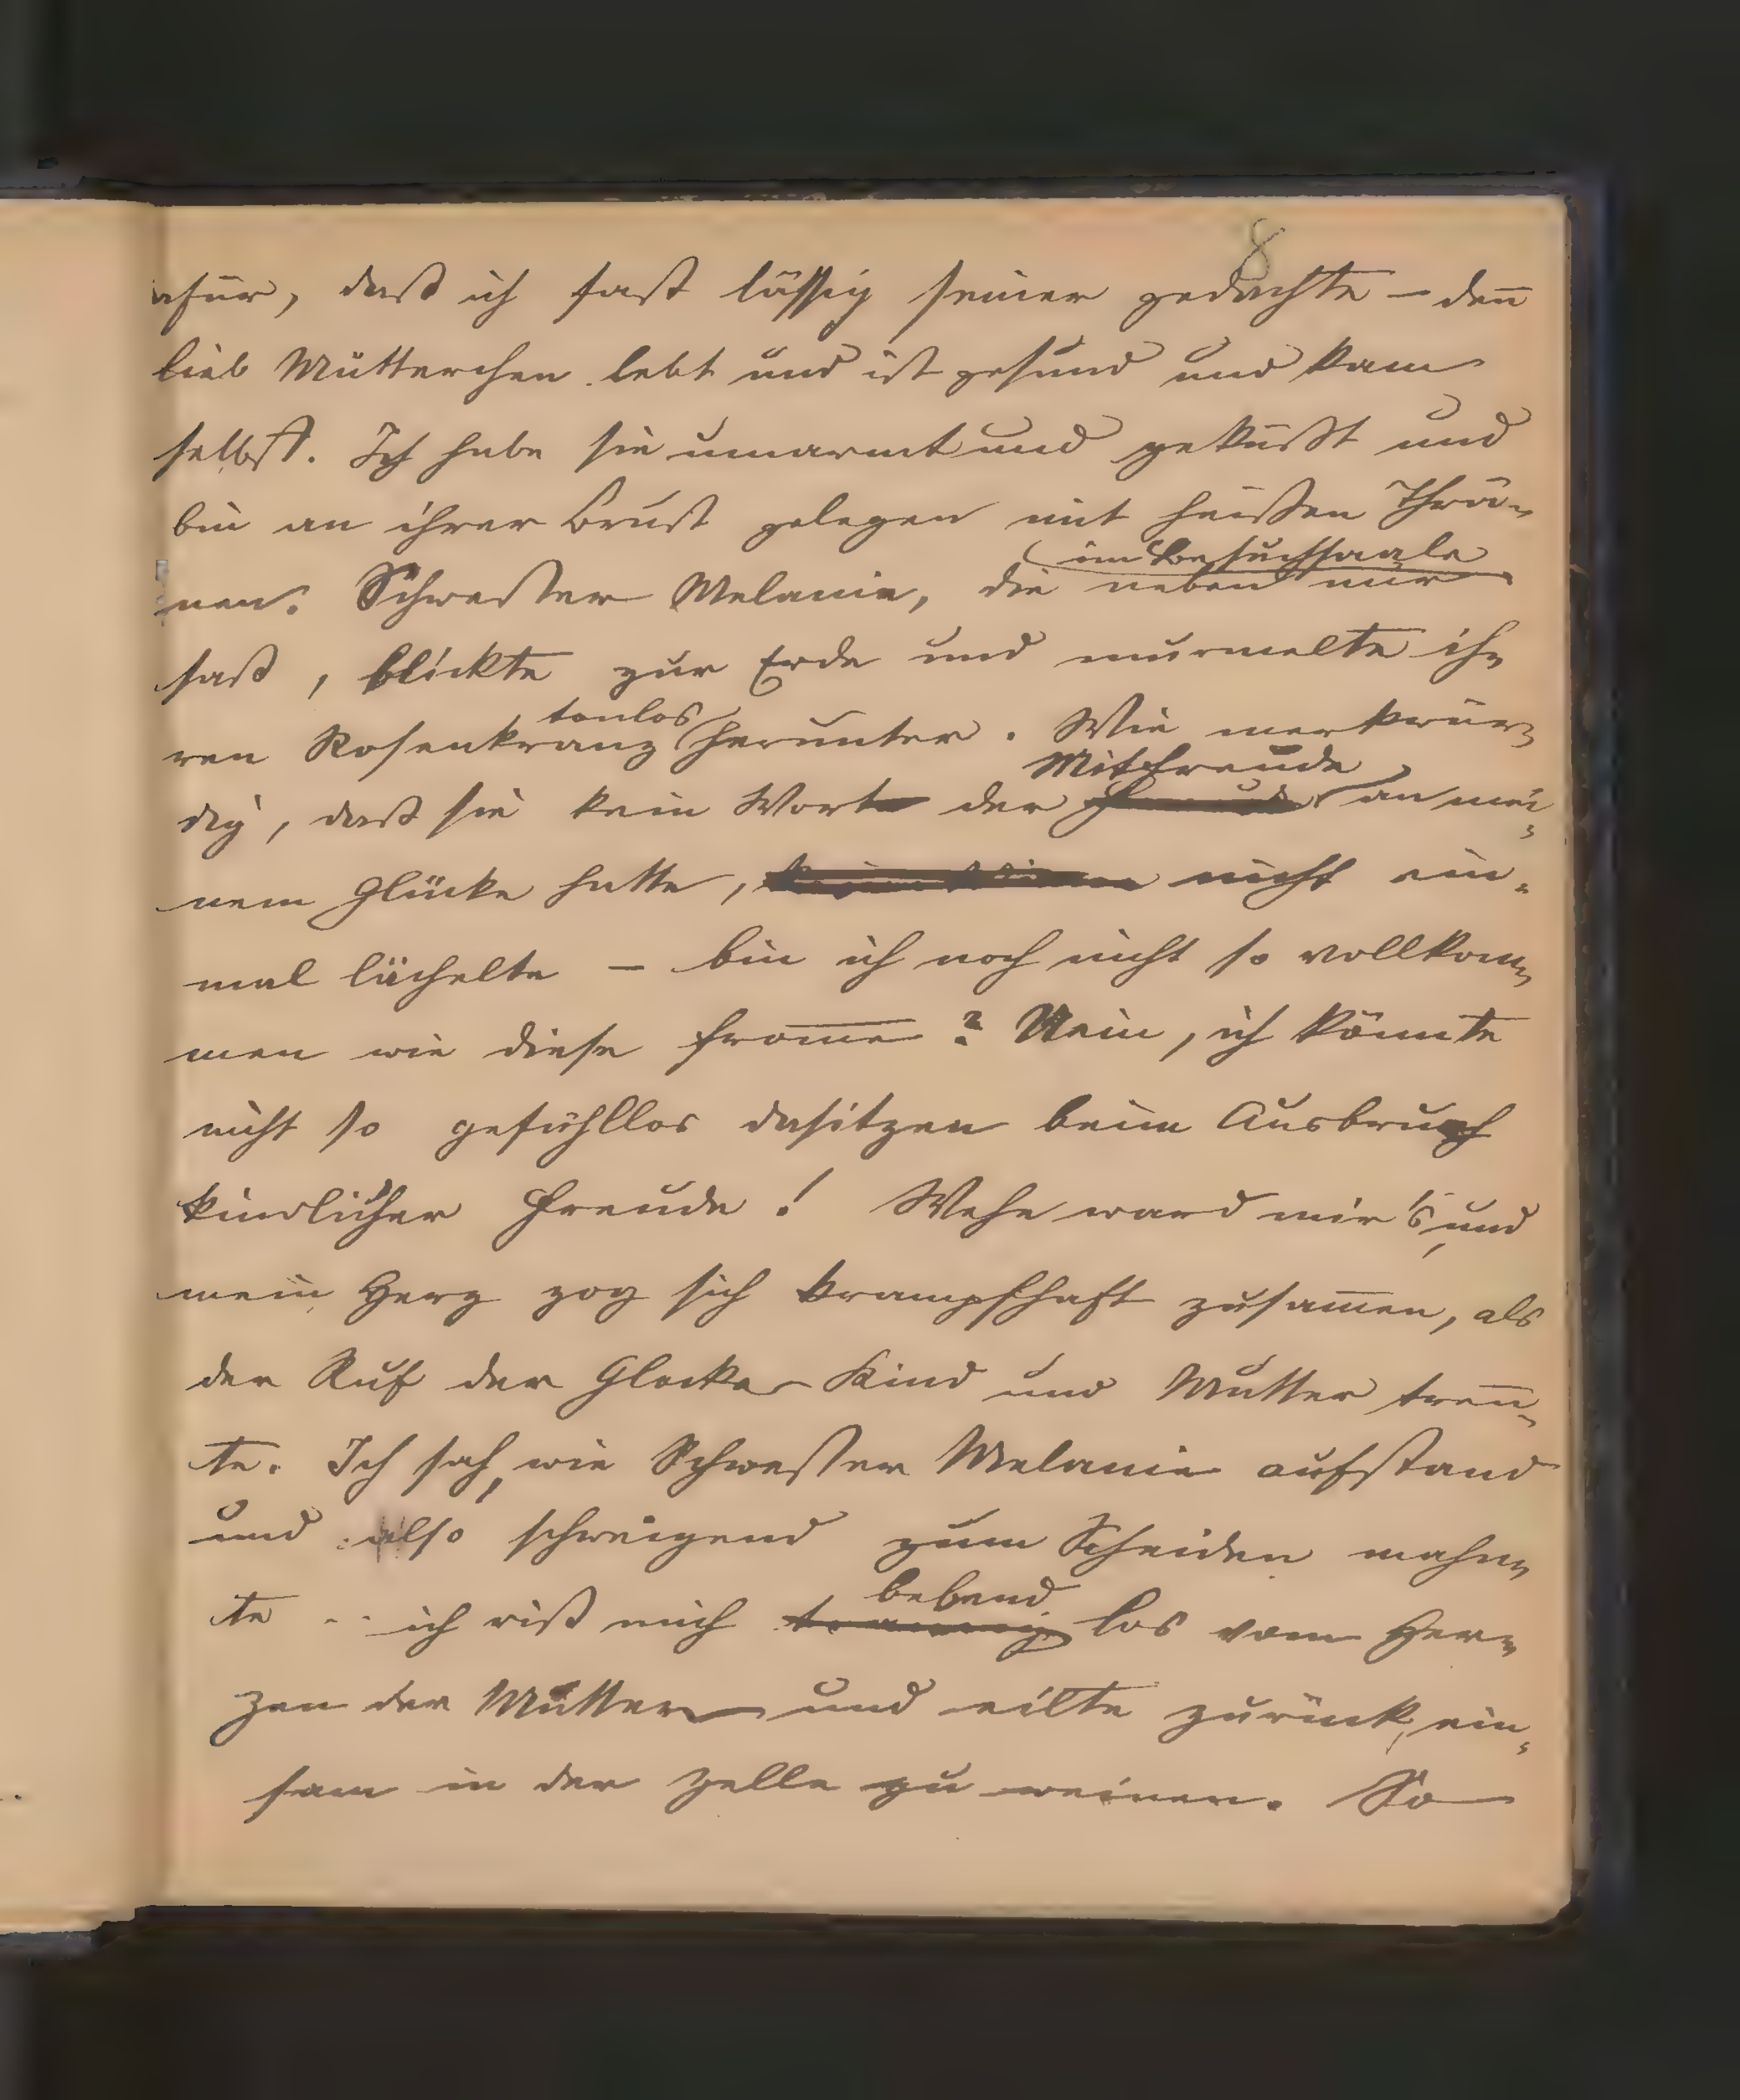 8
afür, daß ich fast lässig seiner gedachte – den̄
lieb Mütterchen lebt und ist gesund und kam
selbst. Ich habe sie umarmt und geküßt und
bin an ihrer Brust gelegen mit heißen Thrä-
im Besuchsaale
nen. Schwester Melanie, die neben mir
saß, blickte zur Erde und murmelte ih-
tonlos
ren Rosenkranz herunter. Wie merkwür-
Mitfreude
dig, daß sie kein Wort der Freude an mei-
nem Glücke hatte, nicht ein-
mal lächelte – bin ich noch nicht so vollkom-
men wie diese From̄e? Nein, ich könnte
nicht so gefühllos dasitzen beim Ausbruch
kindlicher Freude! Wehe ward mir's, und
mein Herz zog sich krampfhaft zusam̄en, als
der Ruf der Glocke Kind und Mutter tren̄-
te. Ich sah, wie Schwester Melanie aufstand
und also schweigend zum Scheiden mahn-
bebend
te .. ich riß mich traurig los vom Her-
zen der Mutter und eilte zurück, ein-
sam in der Zelle zu weinen. So